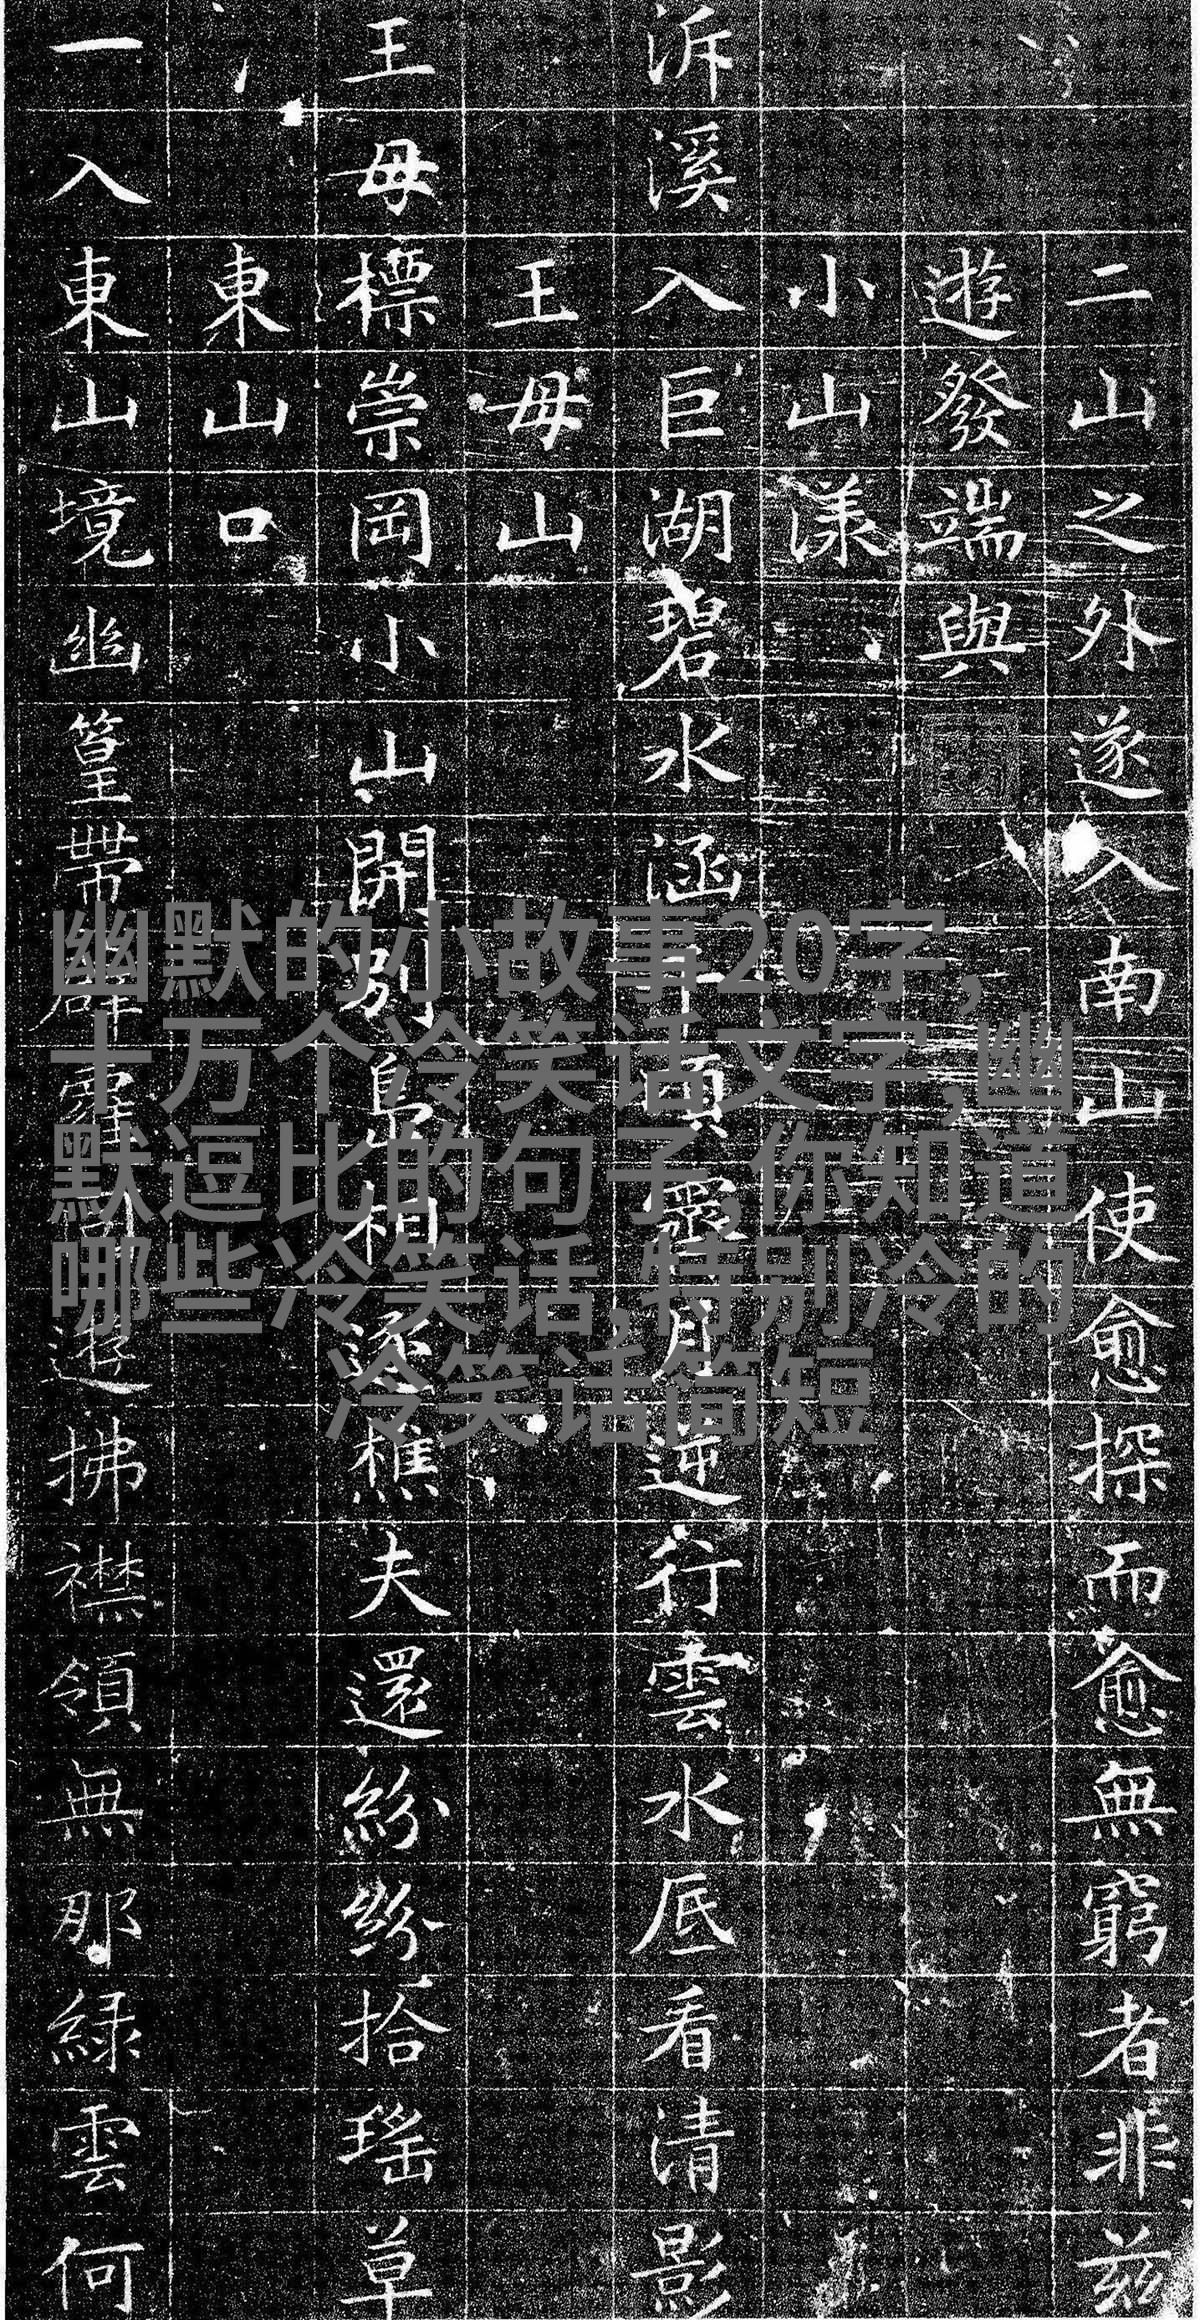 幽默的小故事20字,
十万个冷笑话文字,幽
默逗比的句子,你知道
哪些冷笑话,特别冷的
冷笑话简短
二山之外遂入南山使愈探而愈無窮者非茲
遊發端與
小山漾
泝溪入巨湖碧水涵千頃月逆行雲水底看清影
王母山
王母標崇岡小山開別島相逐樵夫還紛紛拾瑤草
東山口
一入東山境幽篁帶遊拂襟領無那綠雲何